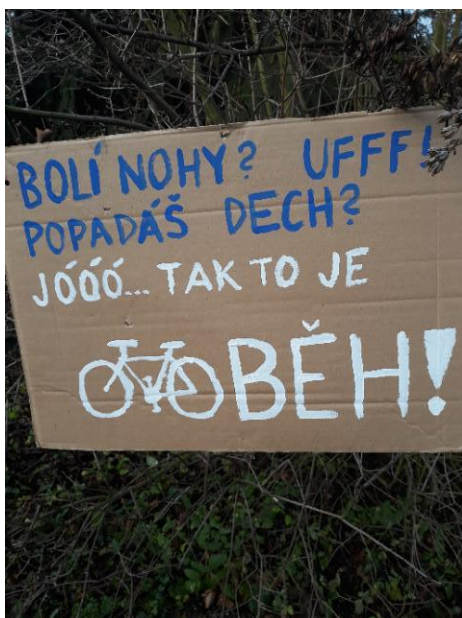 BOLÍ NOHY? UFFF!
POPADÁŠ DECH?
JÓÓÓ... TAK TO JE
BĚH!